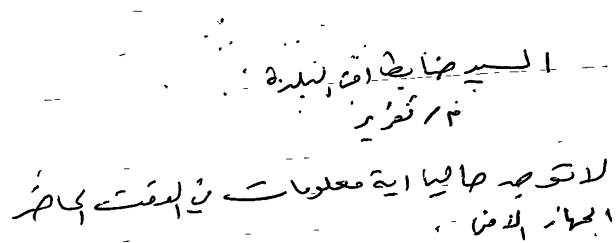 السيد ضابط امن البلدة
م / تقرير
لا توجد حاليا اية معلومات في الوقت الحاضر
الجهاز الامن